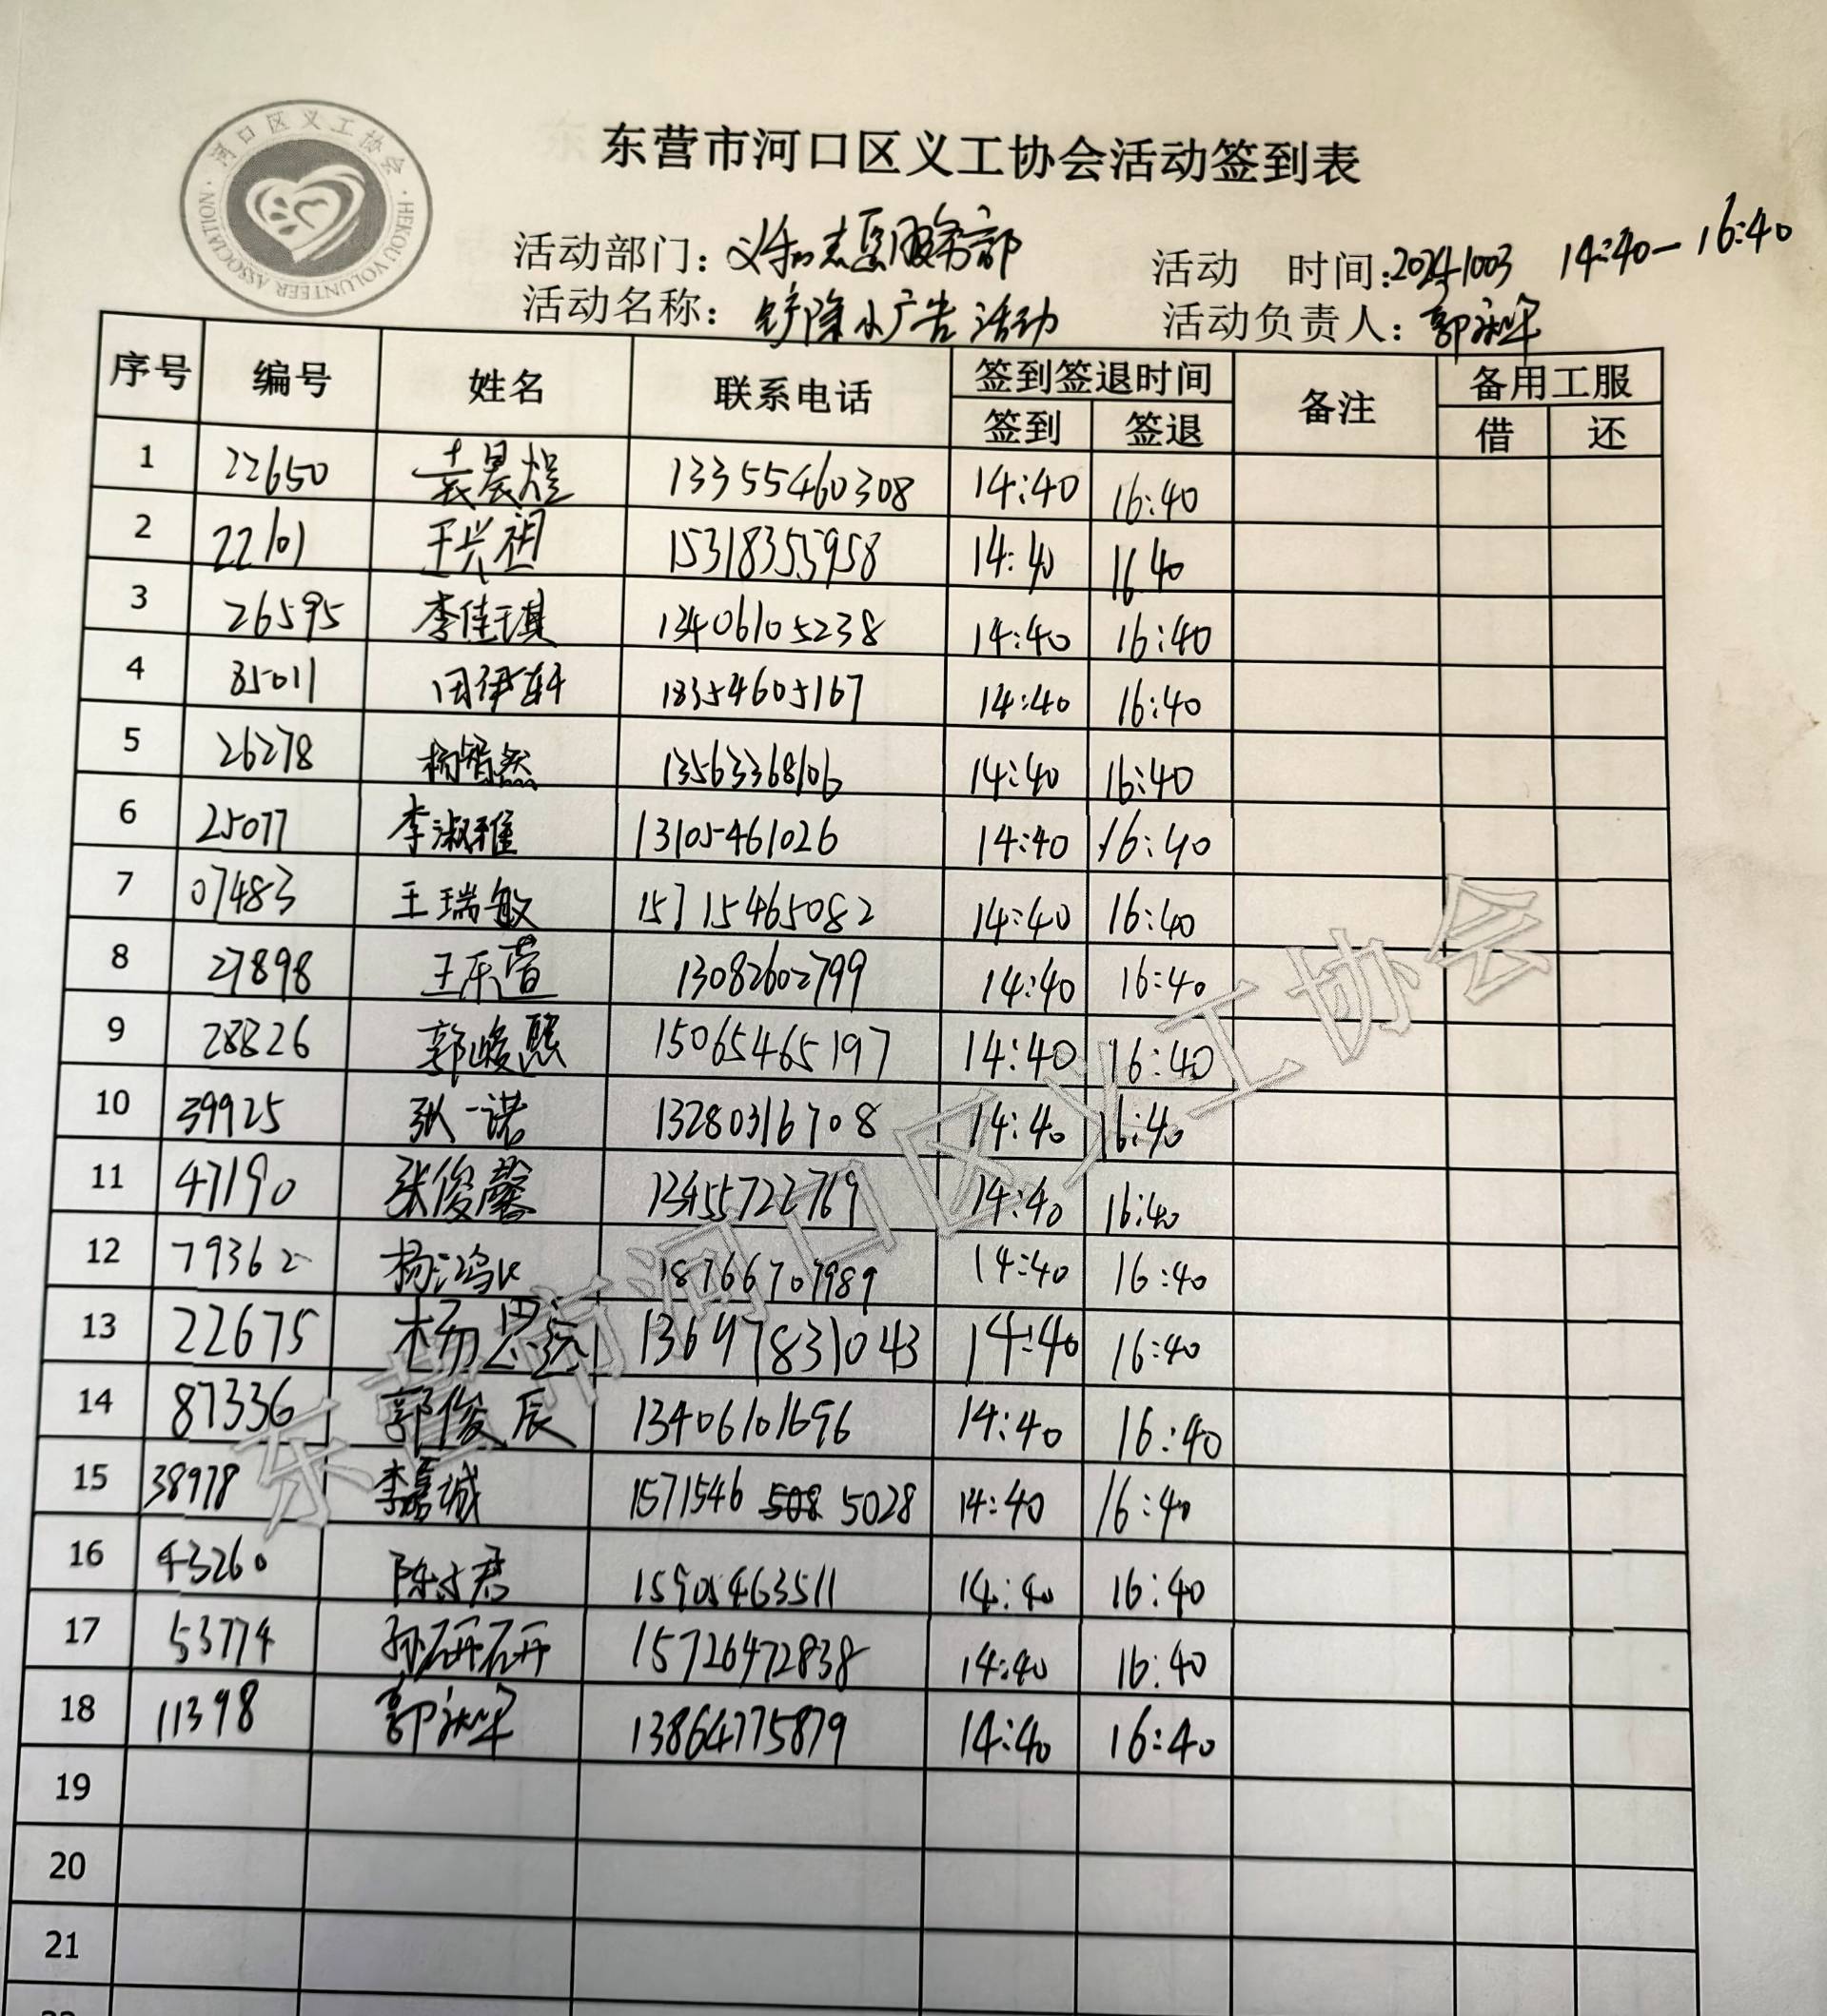 河口区义工协会
HEKOU VOLUNTEER ASSOCIATION
东营市河口区义工协会活动签到表
活动部门：义和志愿服务部 活动 时间：20241003 14:40-16:40
活动名称：铲除小广告活动 活动负责人：郭
序号 编号 姓名 联系电话 签到签退时间 备注 备用工服
签到 签退 借 还
1 22650 袁晨煜 13355460308 14:40 16:40
2 22101 王兴祖 15318355958 14:40 1640
3 26595 李佳琪 13406105238 14:40 16:40
4 85011 田伊轩 18354605167 14:40 16:40
5 26278 杨智然 13563368106 14:40 16:40
6 25077 李淑雅 13105461026 14:40 16:40
7 07483 王瑞敏 15715465082 14:40 16:40
8 27898 王乐萱 13082602799 14:40 16:40
9 28826 郭峻熙 15065465197 14:40 16:40
10 39925 张一诺 13280316708 14:40 16:40
11 47190 张俊馨 13455722769 14:40 16:40
12 79362 杨鸿 18766707989 14:40 16:40
13 22675 杨思远 13697831043 14:40 16:40
14 87336 郭俊辰 13406101696 14:40 16:40
15 38978 李嘉诚 1571546 508 5028 14:40 16:40
16 43260 陈君 15905463511 14:40 16:40
17 53774 孙研研 15726472838 14:40 16:40
18 11398 郭 13864775879 14:40 16:40
19
20
21
东营市河口区义工协会